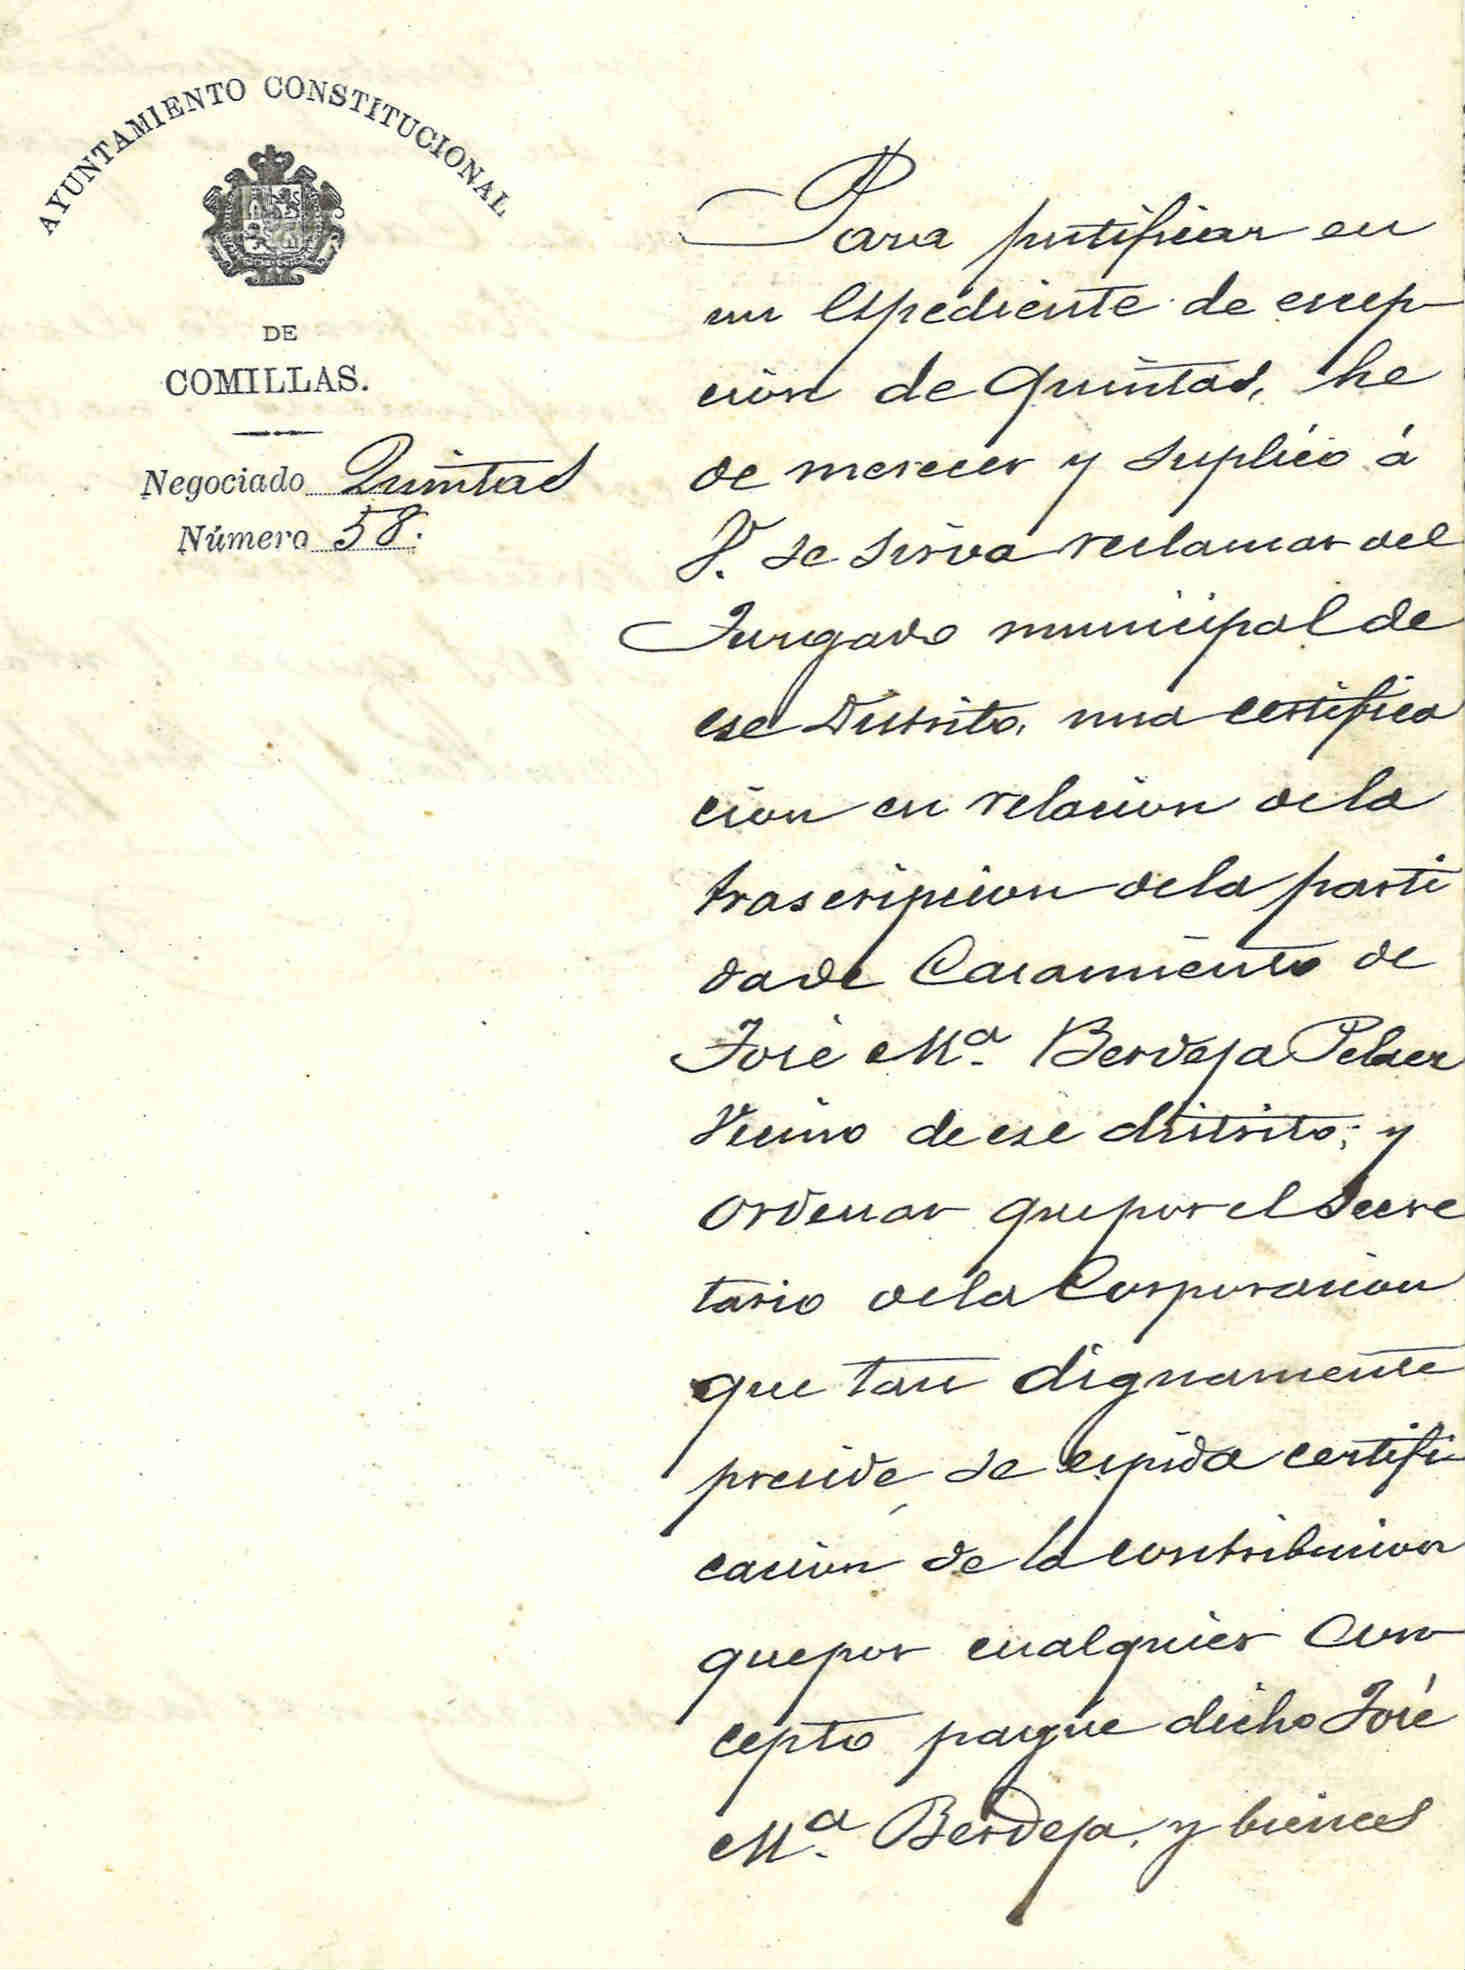 AYUNTAMIENTO CONSTITUCIONAL
DE
COMILLAS.
Negociado Quintas
Número 58.
Para justificar en
un espediente de escep-
cion de Quintas, he
de merecer y suplico á
V. se sirva reclamar del
Juzgado municipal de
ese Distrito, una certifica
cion en relacion de la
trascripcion de la parti
da de Casamiento de
José Mª. Berdeja Pelaez
Vecino de ese distrito; y
ordenar que por el Secre
tario de la Corporacion
que tan dignamente
preside, se espida certifi-
cacion de la contribucion
que por cualquier Con
cepto pague dicho José
Mª. Berdeja, y bienes